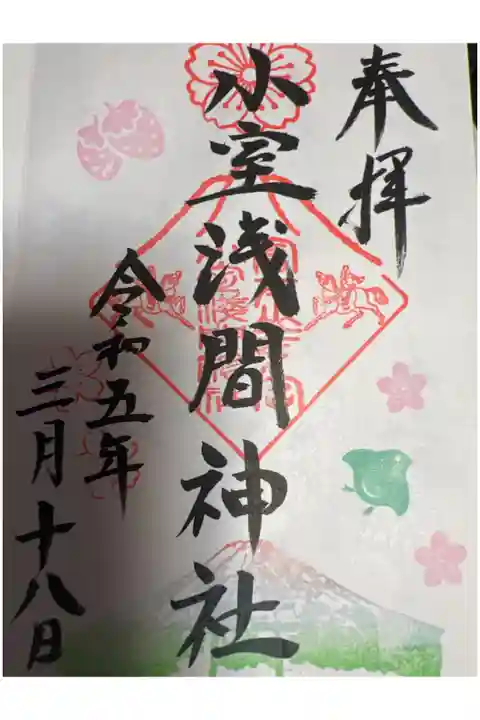 奉拝
小室浅間神社
令和五年
三月十八日